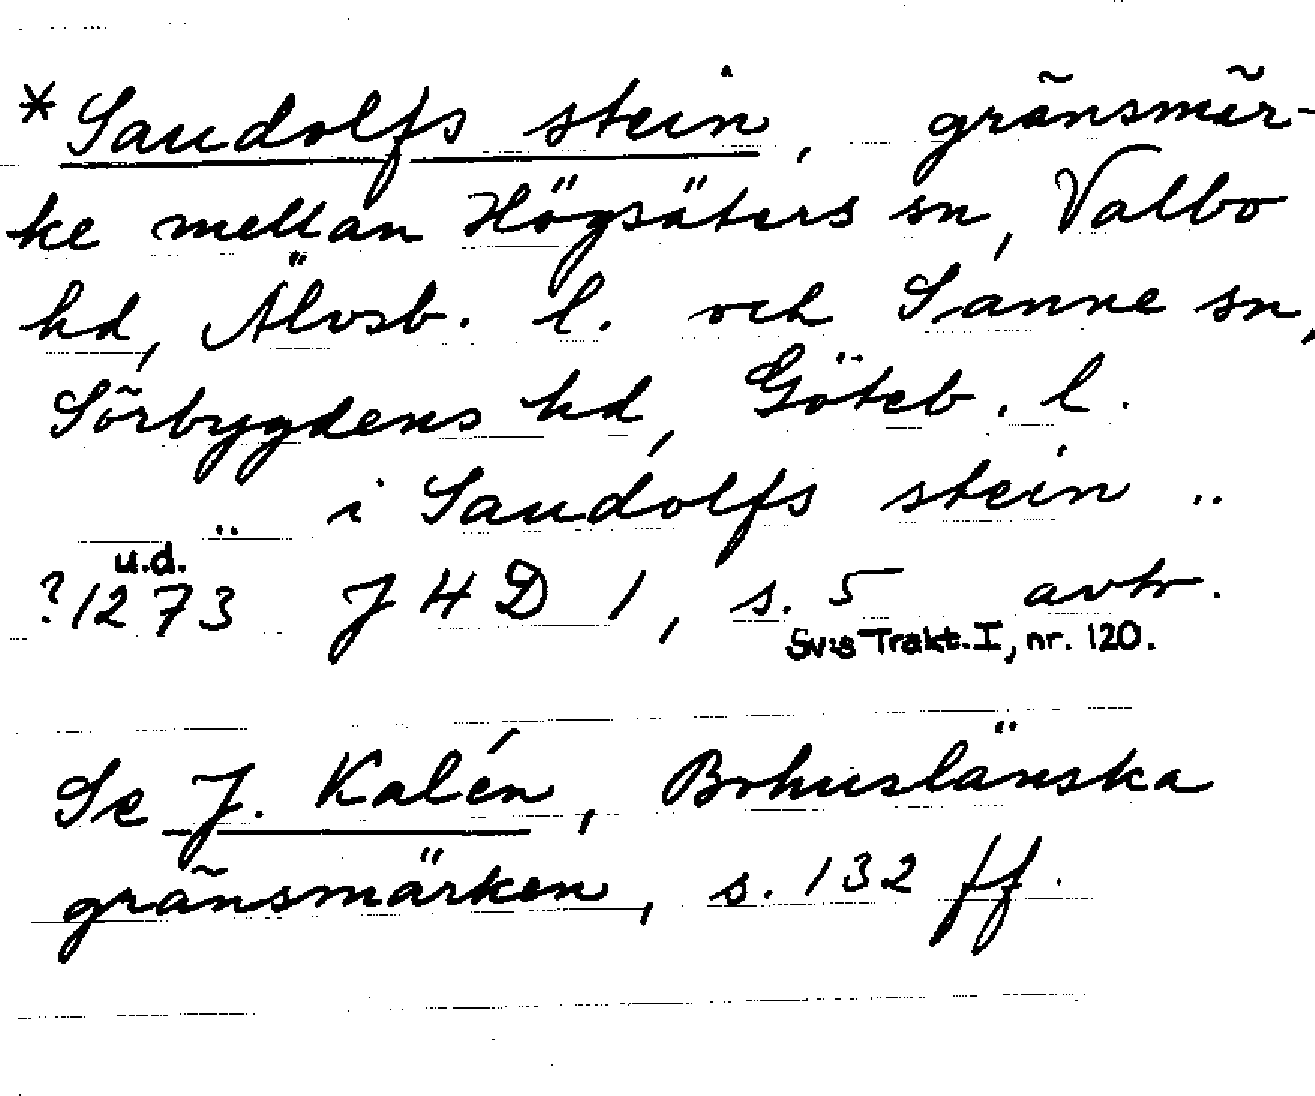 *Saudolfs stein, gränsmär-
ke mellan Högsäters sn, Valbo
hd, Älvsb. l. och Sanne sn,
Sörbygdens hd, Göteb. l.
.. i Saudolfs stein ..
u.d.
?1273 J 4 D 1, s. 5 avtr.
Sv:s Trakt. I, nr. 120.
Se J. Kalén, Bohuslänska
gränsmärken, s. 132 ff.